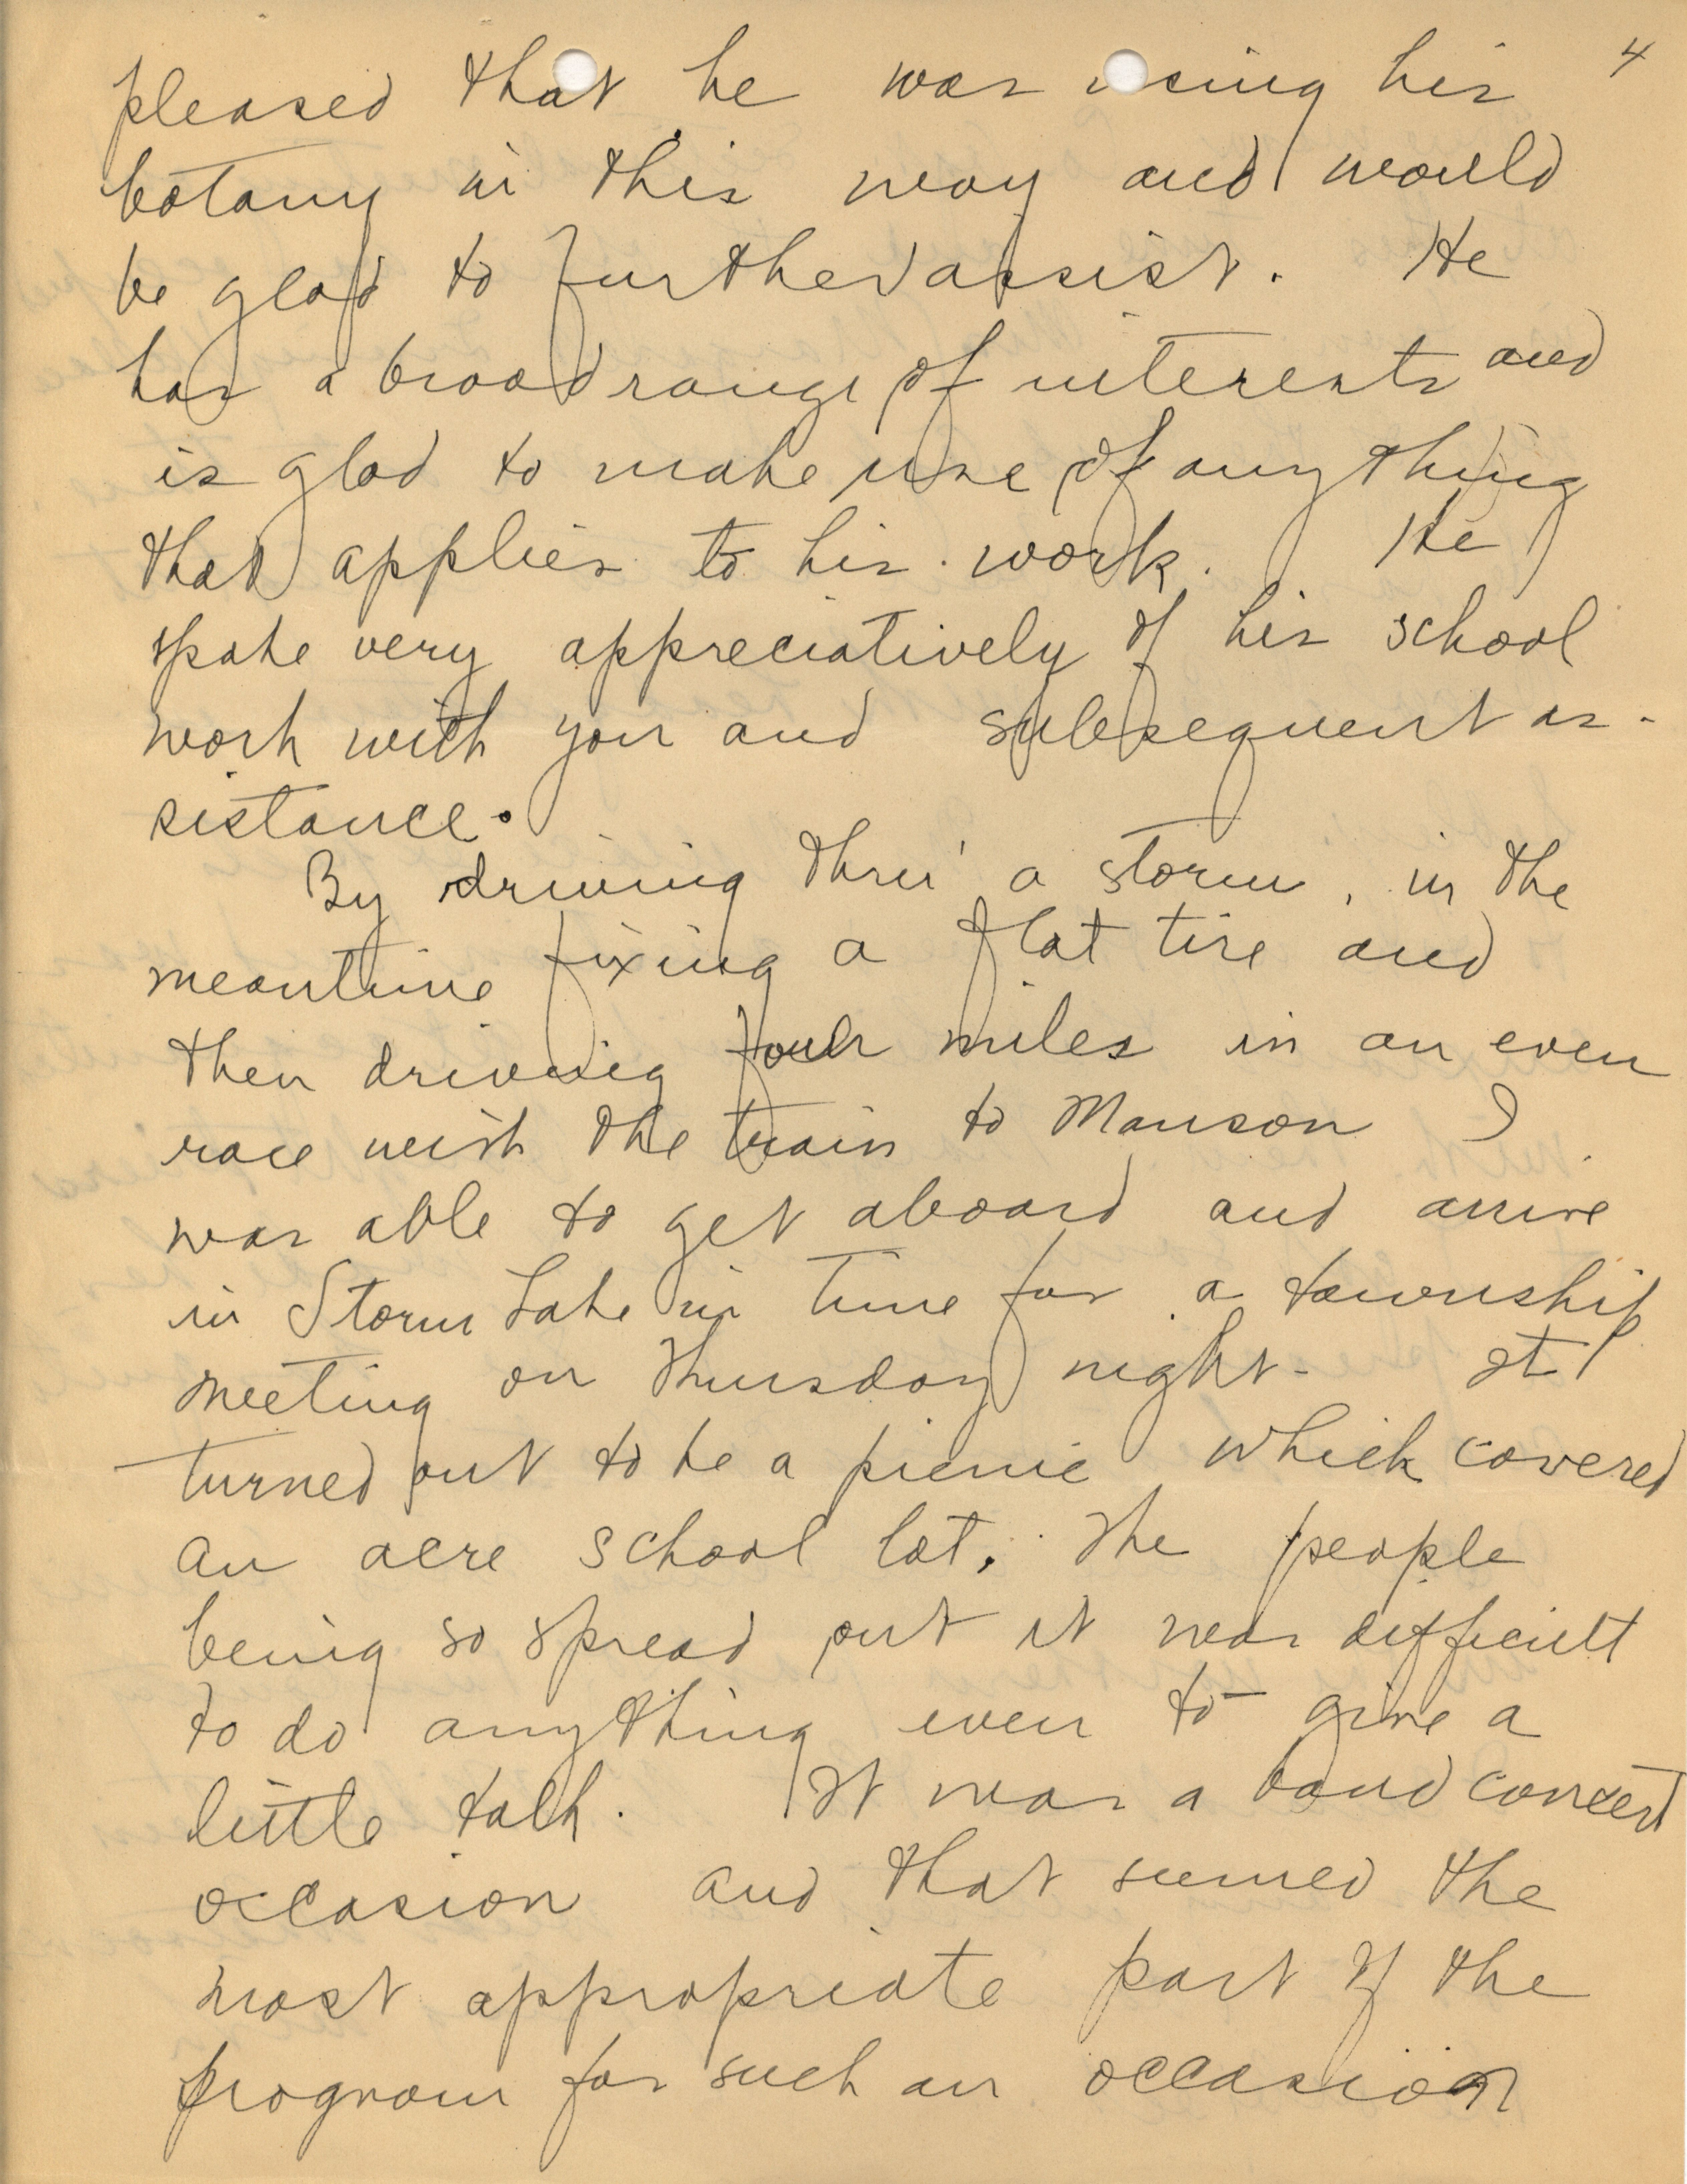 4
pleased that he was using his
botany in this way and would
be glad to further assist. He
has a broad range of interests and
is glad to make use of anything
that applies to his work. He
spoke very appreciatively of his school
work with you and subsequent as-
sistance.
By driving thru' a storm, in the
meantime fixing a flat tire and
then driving four miles in an even
race with the train to Manson I
was able to get aboard and arrive
in Storm Lake in time for a township
meeting on Thursday night - It
turned out to be a picnic which covered
an acre school lot. The people
being so spread out it was difficult
to do anything even to give a
little talk. It was a band concert
occasion and that seemed the
most appropriate part of the
program for such an occasion